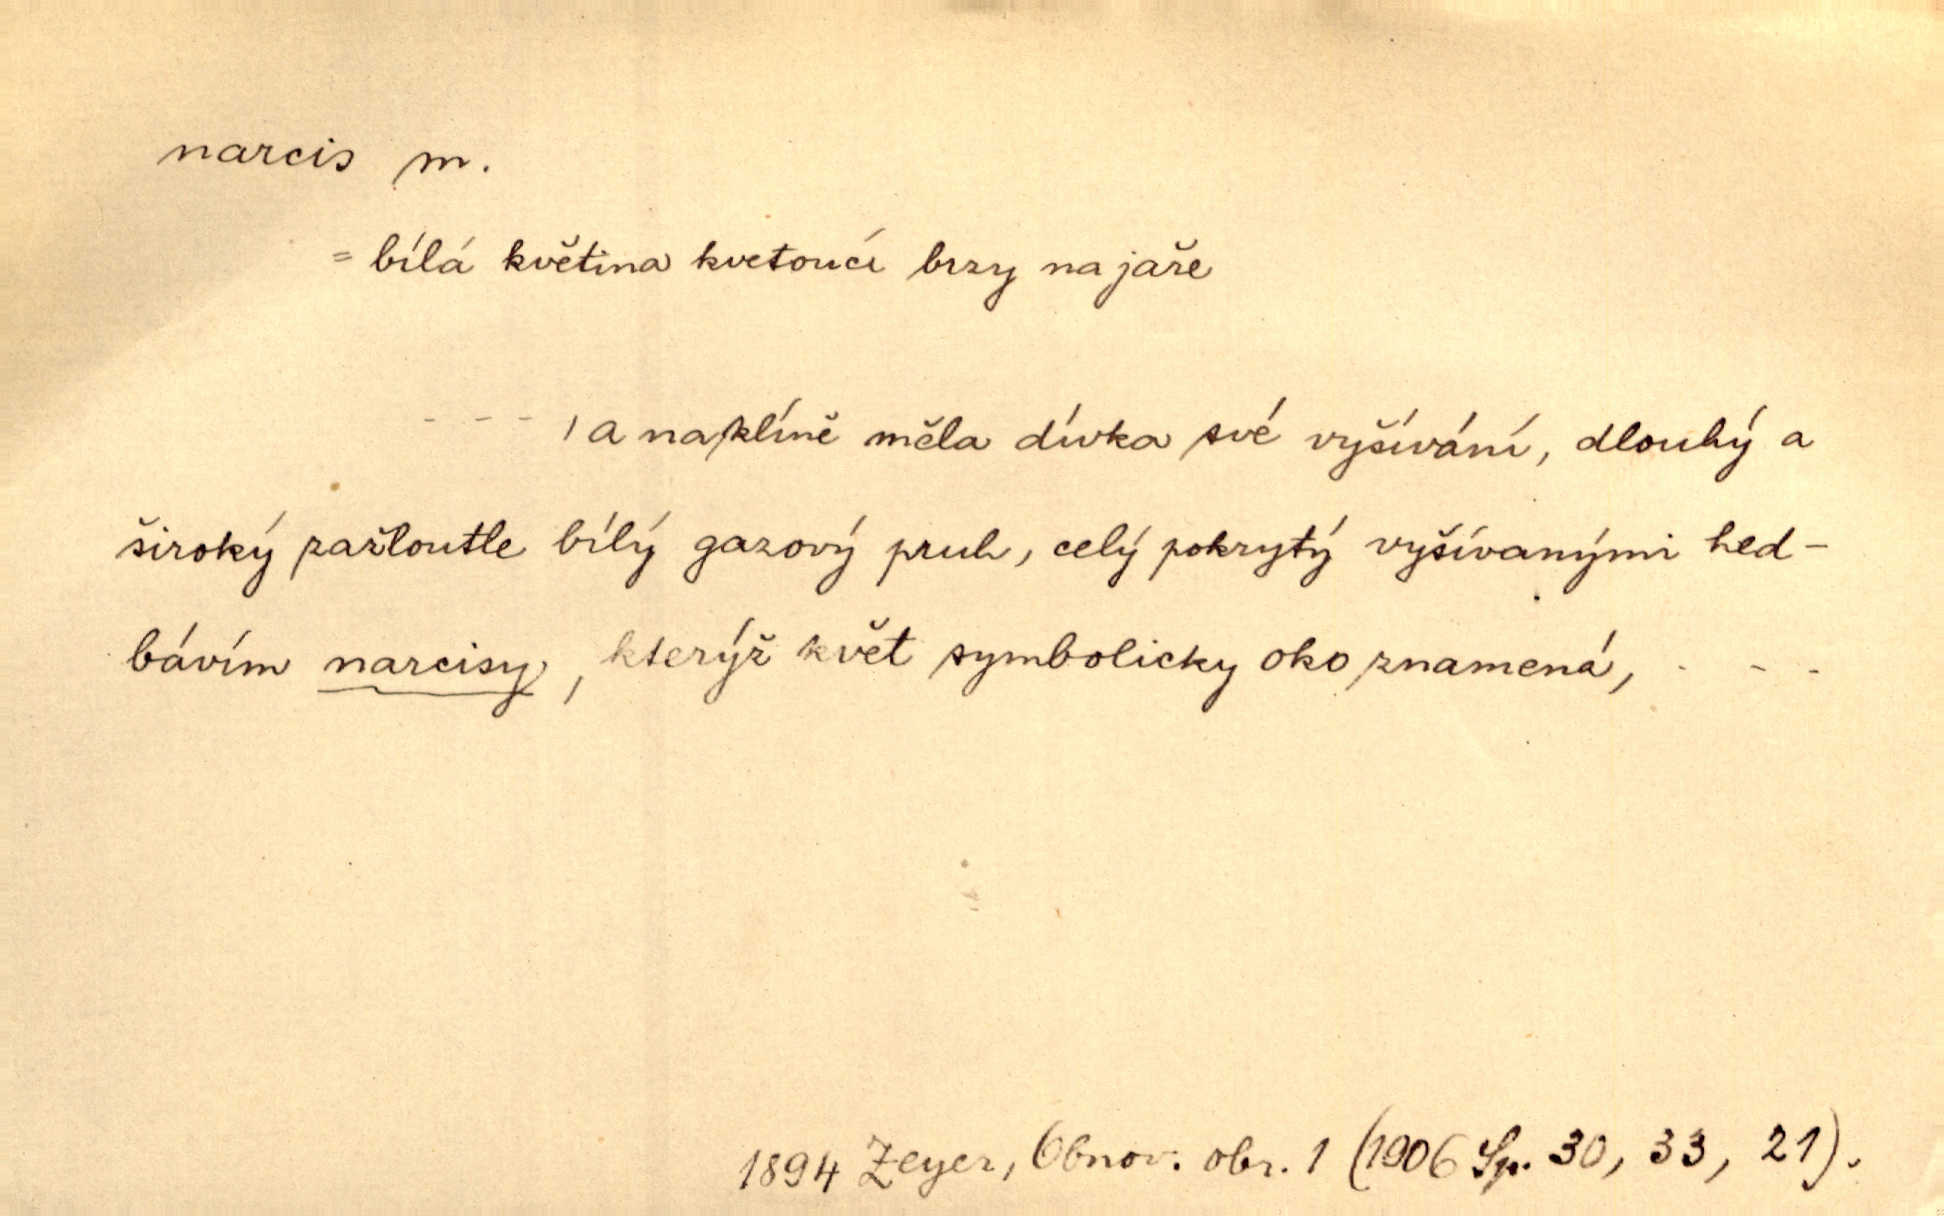 narcis m.
= bílá květina kvetoucí brzy na jaře
- - - , a na klíně měla dívka své vyšívání, dlouhý a
široký zažloutle bílý gazový pruh, celý pokrytý vyšívanými hed-
bávím narcisy, kterýž květ symbolicky oko znamená, - - -
1894 Zeyer, Obnov. obr. 1 (1906 Sp. 30, 33, 21).